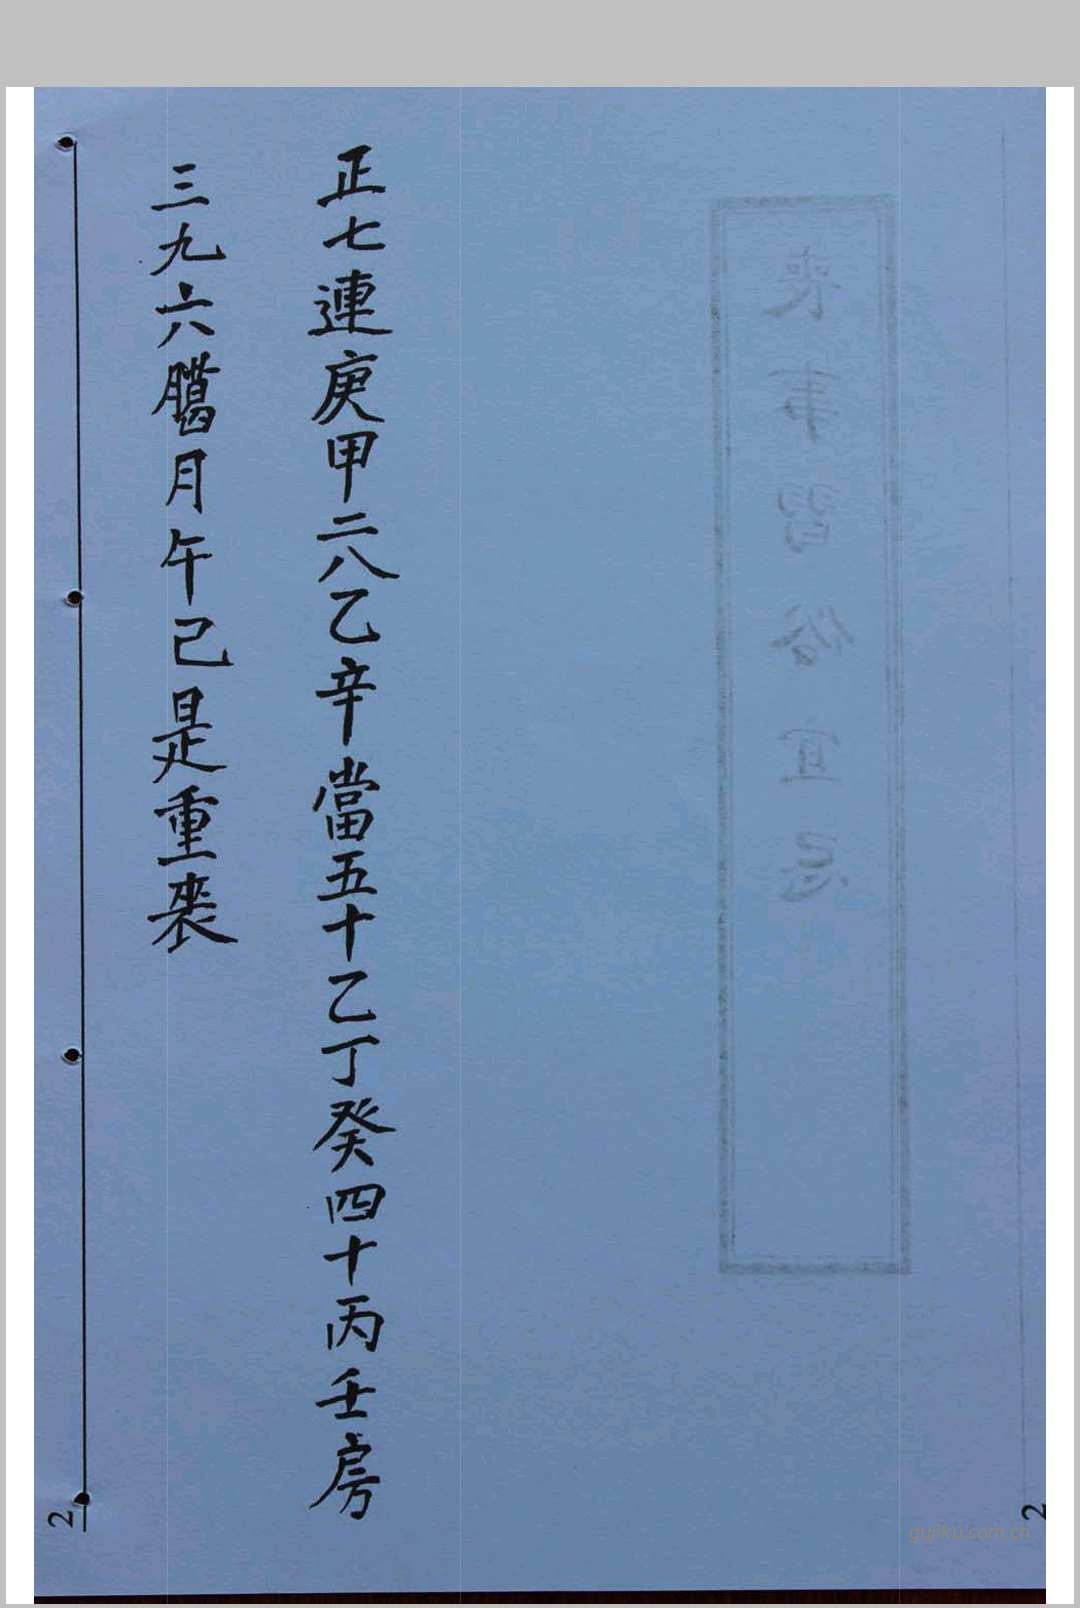 喪事習俗宜忌
正七連庚甲二八乙辛當五十乙丁癸四十丙壬房
三九六臈月午己是重喪
2
2
gujiku.com.cn